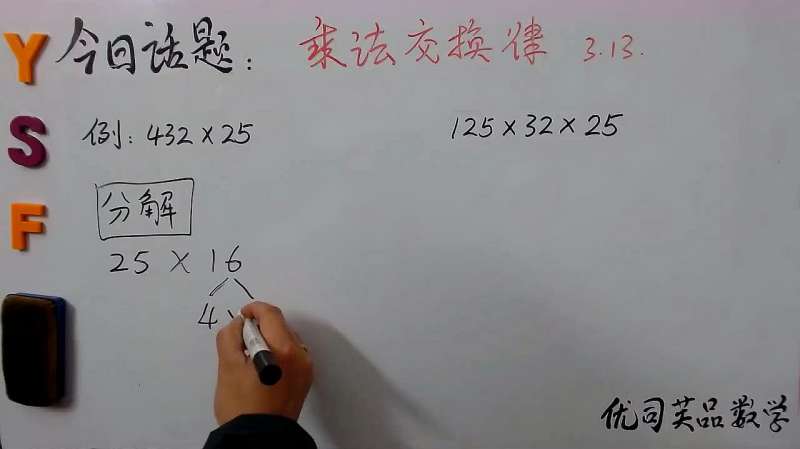 Y
S
F
今日话题: 乘法交换律 3.13.
例: 432×25
125×32×25
分解
25×16
4×
优司芙品数学